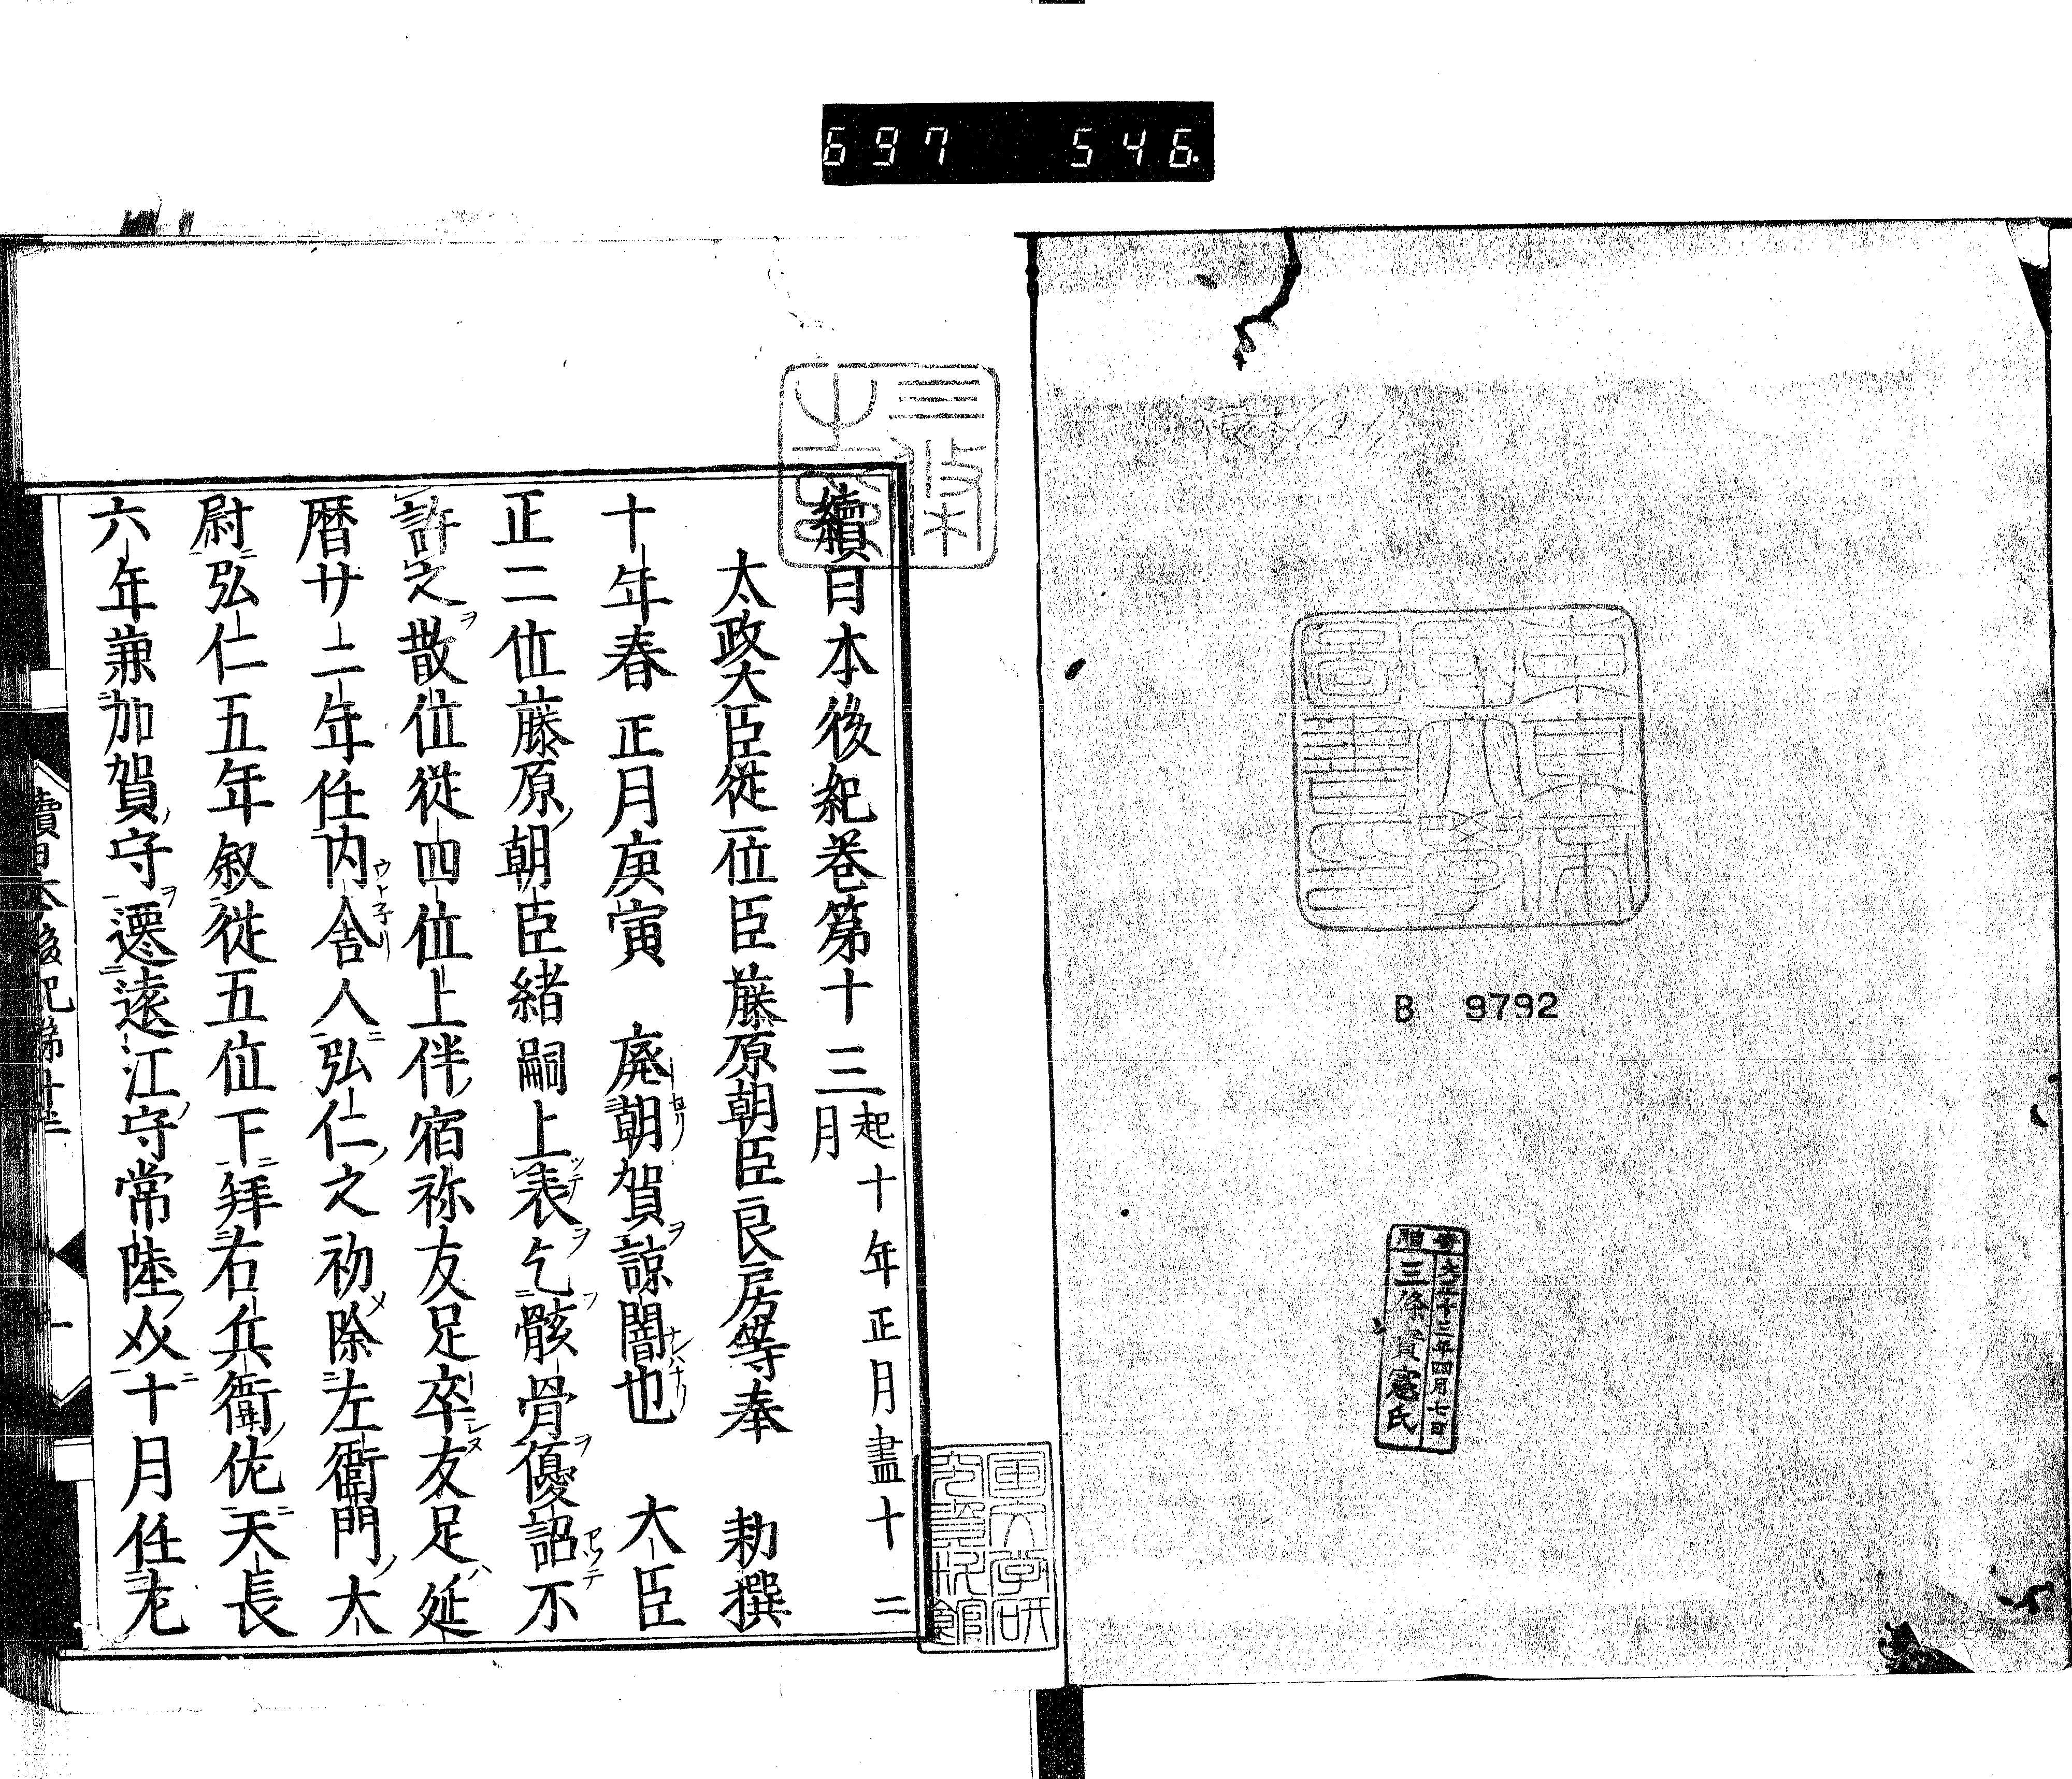 697 546
東京帝國大學圖書印
B 9792
寄贈
大正十三年四月七日
三條實憲氏
續日本後紀卷第十三 起十年正月盡十二月
太政大臣從一位臣藤原朝臣良房等奉 勅撰
十年春正月庚寅 廢朝賀諒闇也 大臣
正二位藤原朝臣緒嗣上表乞骸骨優詔不
許之散位從四位上伴宿祢友足卒友足延
暦廿二年任内舎人弘仁之初除左衛門大
尉弘仁五年叙從五位下拜右兵衛佐天長
六年兼加賀守遷遠江守常陸介十月任左
續日本後紀第十三
一